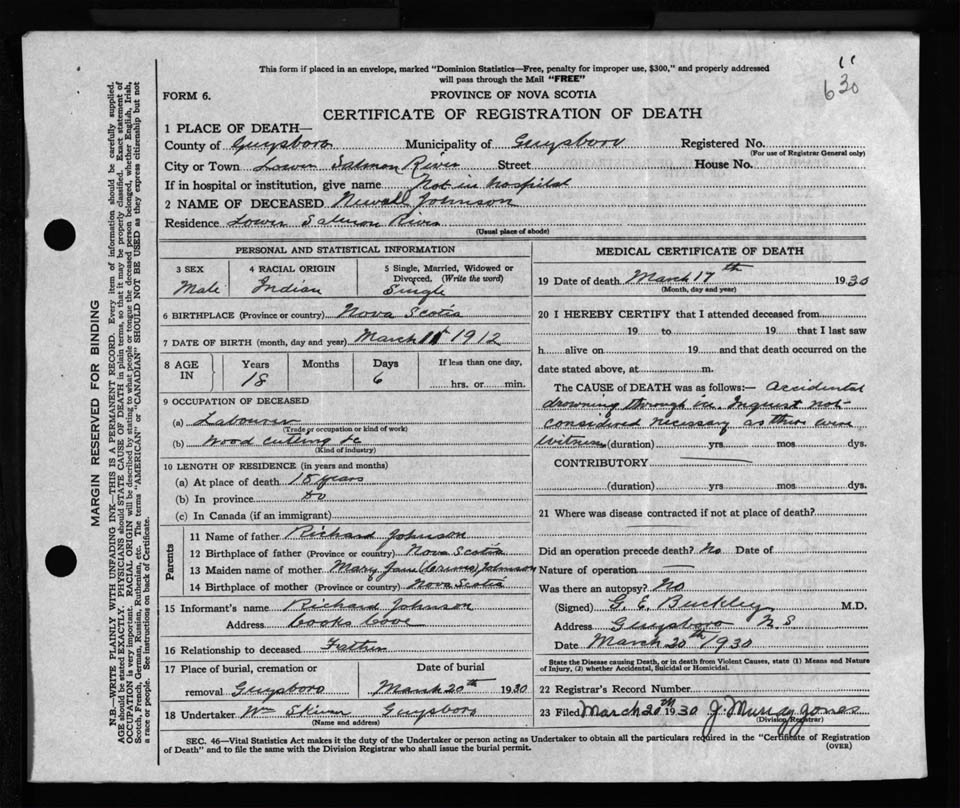 This form if placed in an envelope, marked "Dominion Statistics—Free, penalty for improper use, $300," and properly addressed
will pass through the Mail "FREE"
630
FORM 6.
PROVINCE OF NOVA SCOTIA
CERTIFICATE OF REGISTRATION OF DEATH
1 PLACE OF DEATH—
County of Guysboro Municipality of Guysboro Registered No.
(For use of Registrar General only)
City or Town Lower Salmon River Street House No.
If in hospital or institution, give name Not in hospital
2 NAME OF DECEASED Newall Johnson
Residence Lower Salmon River
(Usual place of abode)
PERSONAL AND STATISTICAL INFORMATION
3 SEX
Male
4 RACIAL ORIGIN
Indian
5 Single, Married, Widowed or
Divorced. (Write the word)
Single
6 BIRTHPLACE (Province or country) Nova Scotia
7 DATE OF BIRTH (month, day and year) March 11 1912
8 AGE
IN
Years
18
Months
Days
6
If less than one day,
hrs. or min.
9 OCCUPATION OF DECEASED
(a) Labourer
(Trade or occupation or kind of work)
(b) Wood cutting &c
(Kind of industry)
10 LENGTH OF RESIDENCE (in years and months)
(a) At place of death 18 years
(b) In province do
(c) In Canada (if an immigrant)
Parents
11 Name of father Richard Johnson
12 Birthplace of father (Province or country) Nova Scotia
13 Maiden name of mother Mary Jane Johnson
14 Birthplace of mother (Province or country) Nova Scotia
15 Informant's name Richard Johnson
Address Cooks Cove
16 Relationship to deceased Father
17 Place of burial, cremation or
removal Guysboro
Date of burial
March 20th 1930
18 Undertaker Wm Guysboro
(Name and address)
MEDICAL CERTIFICATE OF DEATH
19 Date of death March 17th 1930
(Month, day and year)
20 I HEREBY CERTIFY that I attended deceased from
19 to 19 that I last saw
h alive on 19 and that death occurred on the
date stated above, at m.
The CAUSE of DEATH was as follows:— Accidental
drowning through ice. Inquest not
considered necessary as there were
witness (duration) yrs mos dys.
CONTRIBUTORY
(duration) yrs. mos. dys.
21 Where was disease contracted if not at place of death?
Did an operation precede death? No Date of
Nature of operation
Was there an autopsy? No
(Signed) G. E. Buckley M.D.
Address Guysboro N.S
Date March 20th 1930
State the Disease causing Death, or in death from Violent Causes, state (1) Means and Nature
of Injury, (2) whether Accidental, Suicidal or Homicidal.
22 Registrar's Record Number
23 Filed March 20th 1930 J. Murray Jones
(Division Registrar)
SEC. 46—Vital Statistics Act makes it the duty of the Undertaker or person acting as Undertaker to obtain all the particulars required in the "Certificate of Registration
of Death" and to file the same with the Division Registrar who shall issue the burial permit.
(OVER)
MARGIN RESERVED FOR BINDING
N.B.—WRITE PLAINLY WITH UNFADING INK—THIS IS A PERMANENT RECORD. Every item of information should be carefully supplied.
AGE should be stated EXACTLY. PHYSICIANS should STATE CAUSE OF DEATH in plain terms, so that it may be properly classified. Exact statement of
OCCUPATION is very important. RACIAL ORIGIN will be described by stating to what people or tongue the deceased person belonged, whether English, Irish,
Scotch, French, German, Russian, Ruthenian, etc. The terms "AMERICAN" or "CANADIAN" SHOULD NOT BE USED as they express citizenship but not
a race or people. See instructions on back of Certificate.